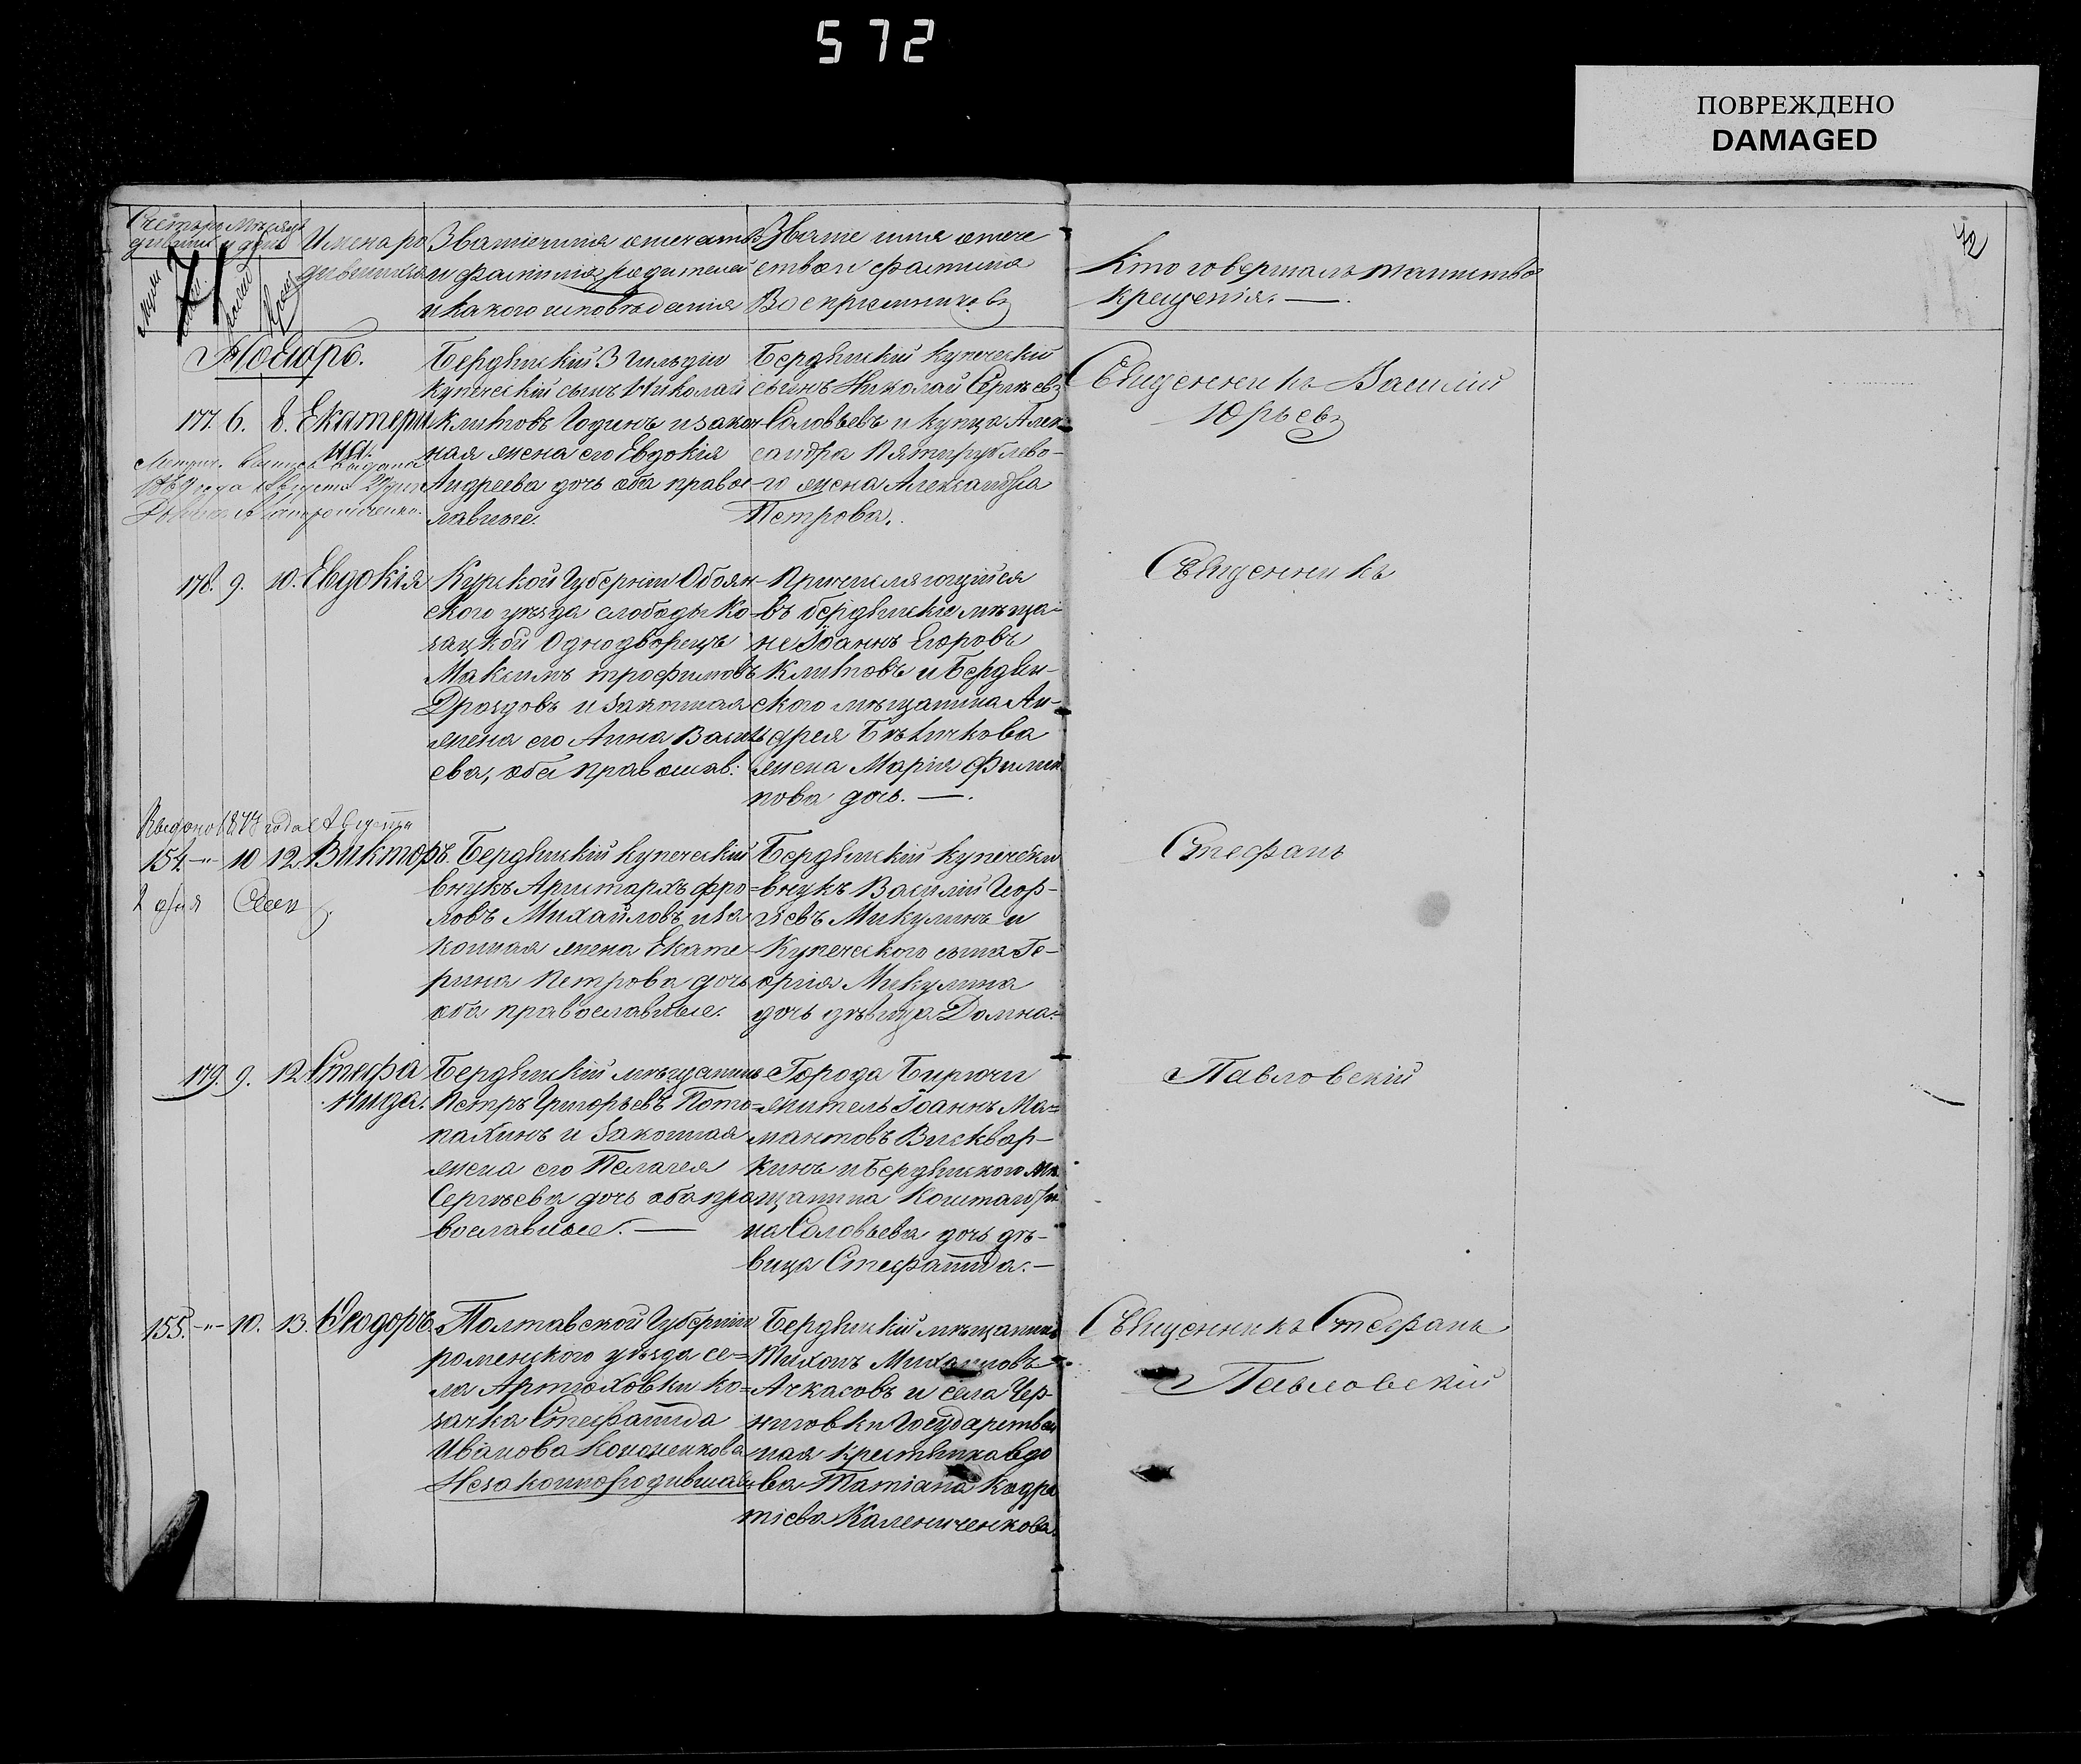 572
ПОВРЕЖДЕНО
DAMAGED
Счетъ ро Мѣсяцъ
дившихся и день
Имена ро
дившихся
Званіе имя отчество
и фамилія родителей
и какого исповѣданія
Званіе имя отче
ство и фамилія
Воспріемниковъ
Кто совершалъ таинство
крещенія. —.
Ноябрь.
177. 6. 8. Екатери
на.
Бердянскій 3 Гильдіи
купеческій сынъ Николай
Годинъ и закон
ная жена его Евдокія
Андреева дочь оба правос
лавные.
Бердянскій купеческій
сынъ Николай Сергѣевъ
Соловьевъ и купца Алек
сандра Пятирублево-
го жена Александра
Петрова.
Священникъ Василій
Юрьевъ
Метрич. выпись выдана
1869 года Августа
178. 9. 10. Евдокія
Курской Губерніи Обоян-
ского уѣзда слободы Ко-
зацкой Однодворецъ
Максимъ Трофимовъ
Дроздовъ и законная
жена его Анна Василь
ева, оба православ:
Причисляющійся
въ бердянскіе мѣща-
не Іоаннъ Егоровъ
и Бердян-
ского мѣщанина Ан-
дрея
жена Марія Филип
пова дочь. —.
Священникъ
Выдано 1877 года Августа
2 дня
154 -"- 10 12. Викторъ
Бердянскій купеческій
внукъ Аристархъ Фро-
ловъ Михайловъ и за
конная жена Екате
рина Петрова дочь
оба православные.
Бердянскій купечески
внукъ Василій
Микулинъ и
Купеческого сына Ге-
оргія Микулина
дочь дѣвица Домна.
Стефанъ
179. 9. 12 Стефа
нида.
Бердянскій мѣщанинъ
Петръ Григорьевъ Пото=
пахинъ и законная
жена его Пелагея
Сергѣева дочь оба пра
вославные. —
Города Бирючи
житель Іоаннъ Ма=
мантовъ
и Бердянского мѣ
щанина Константи
на Соловьева дочь дѣ-
вица Стефанида. —
Павловскій
155. -"- 10. 13. Ѳеодоръ.
Полтавской Губерніи
роменского уѣзда се=
ла Артюховки ко=
зачка Стефанида
Иванова Кононенкова
Незаконнородившаяся
Бердянскій мѣщанинъ
Тихонъ Михаиловъ
Ачкасовъ и села Чер-
ниговки Государствен
ная крестьянка вдо
ва Татіана Кодра
тіева Калениченкова.
Священникъ Стефанъ
Павловскій